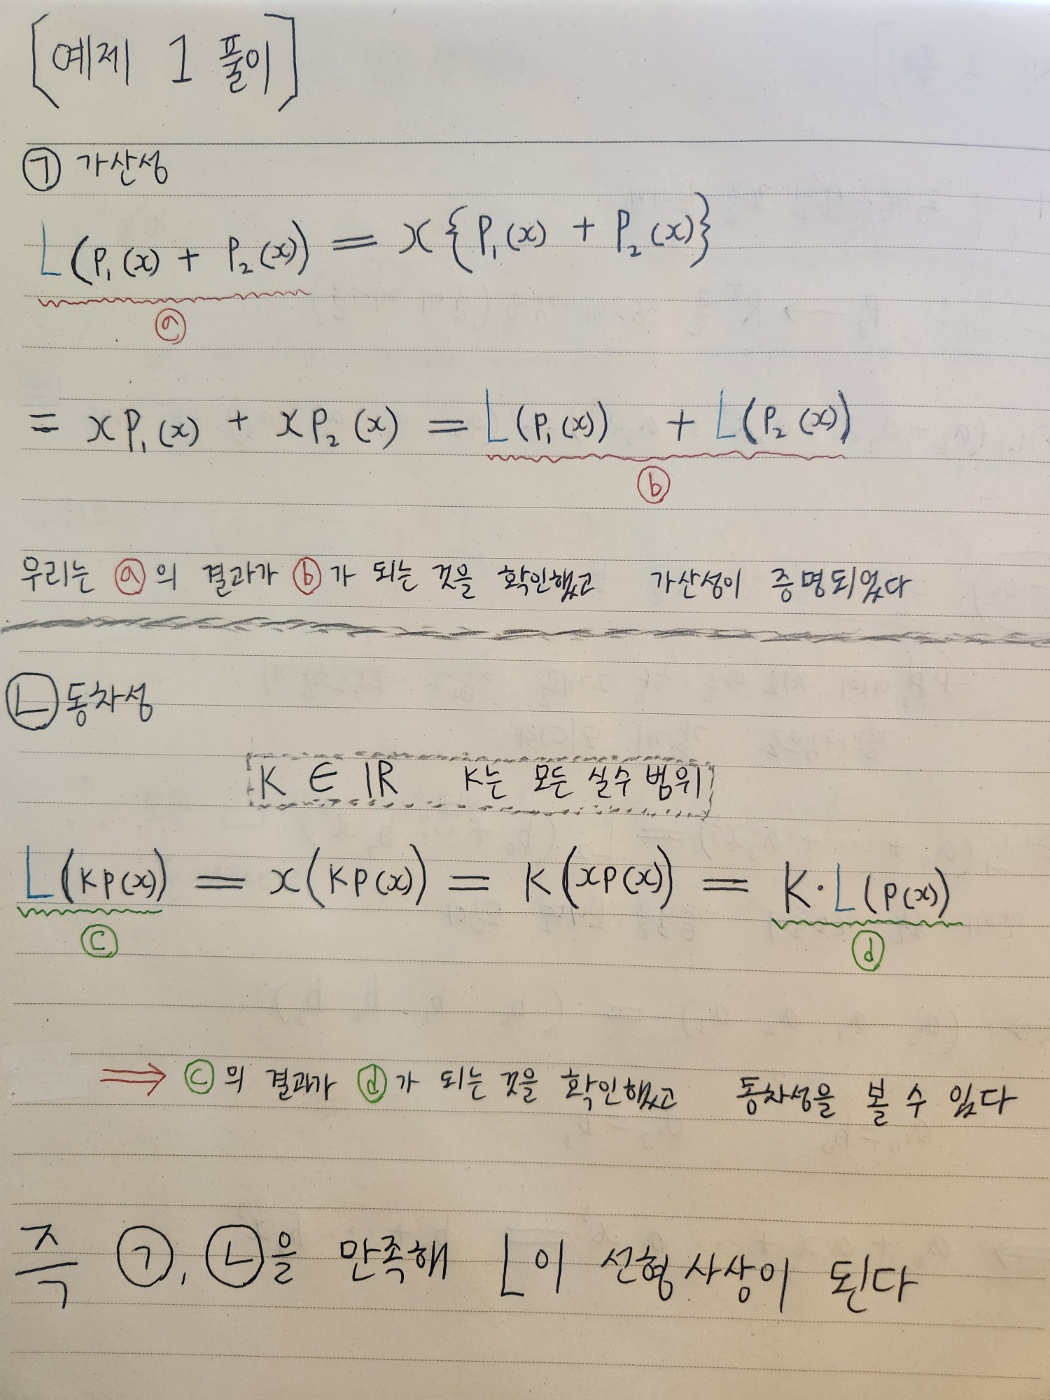 [예제 1 풀이]
㉠ 가산성
L(P₁(x) + P₂(x)) = x{P₁(x) + P₂(x)}
ⓐ
= xP₁(x) + xP₂(x) = L(P₁(x)) + L(P₂(x))
ⓑ
우리는 ⓐ의 결과가 ⓑ가 되는 것을 확인했고 가산성이 증명되었다
㉡ 동차성
K ∈ ℝ K는 모든 실수 범위
L(KP(x)) = x(KP(x)) = K(xP(x)) = K·L(P(x))
ⓒ ⓓ
⇒ ⓒ의 결과가 ⓓ가 되는 것을 확인했고 동차성을 볼 수 있다
즉 ㉠, ㉡을 만족해 L이 선형사상이 된다